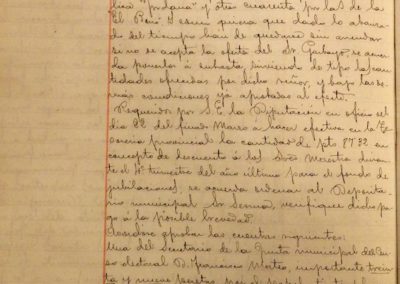 "prodana" y otros cuarenta por las de la
"El Pero" é como quiera que dado lo abanza-
do del tiempo han de quedarse sin arrendar
si no se acepta la oferta del Sr. Garbayo, se acuer-
da ponerlas á subasta, sirviendo de tipo las can-
tidades ofrecidas por dicho señor, y bajo las de-
más condiciones ya apuntadas al efecto.
Requeridos por S. E. la Diputación en oficio del
día 22 del finado Marzo a hacer efectiva en la Te-
sorería provincial la cantidad de pts 87'32 en
concepto de descuento á los Sres Maestros duran-
te el 4º trimestre del año último para el fondo de
jubilaciones, se acuerda ordenar al Deposita-
rio municipal Sr. verifique dicho pa-
go á la posible brevedad.
Acordose aprobar las cuentas siguientes:
Una del Secretario de la Junta municipal del Cen-
so electoral D. Francisco Mateo, importante trein-
ta y nueve pesetas, por el